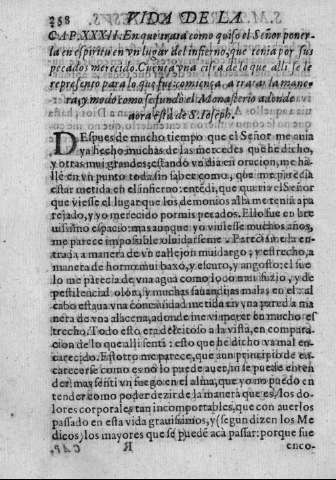 258 VIDA DE LA
CAP. XXXII. En que trata como quiso el Señor poner
la en espiritu en vn lugar del infierno, que tenia por sus
pecados merecido. Cuenta vna cifra de lo que alli se le
represento para lo que fue: comiença a tratar la mane
ra, y modo como se fundò el Monasterio adonde
aora està de S. Ioseph.
DEspues de mucho tiempo que el Señor me auia
ya hecho muchas de las mercedes que he dicho,
y otras mui grandes; estando vn dia en oracion, me ha
llè en vn punto toda sin saber como, que me parecia
estar metida en el infierno: entẽdi, que queria el Señor
que viesse el lugar que los demonios alla me tenia apa
rejado, y yo merecido por mis pecados. Ello fue en bre
uissimo espacio: mas aunque yo viuiesse muchos años,
me parece impossible oluidarseme. Pareciame la en-
trada a manera de vn callejon mui largo; y estrecho, a
manera de horno mui baxo, y escuro, y angosto: el sue
lo me parecia de vna agua como lodo mui suzio, y de
pestilencial olor, y muchas sauandijas malas en el: al
cabo estaua vna concauidad metida en vna pared a ma
nera de vna alacena, adonde me vi meter en mucho es
trecho. Todo esto era deleitoso a la vista, en compara
cion de lo que alli senti: esto que he dicho va mal en-
carecido. Estotro me parece, que aun principio de en
carecerse como es no lo puede auer, ni se puede enten
der: mas senti vn fuego en el alma, que yo no puedo en
tender como poder dezir de la manera que es, los do-
lores corporales tan incomportables, que con auerlos
passado en esta vida grauissimos, y (segun dizen los Me
dicos) los mayores que se puede acà passar: porque fue
CAP. R enco-